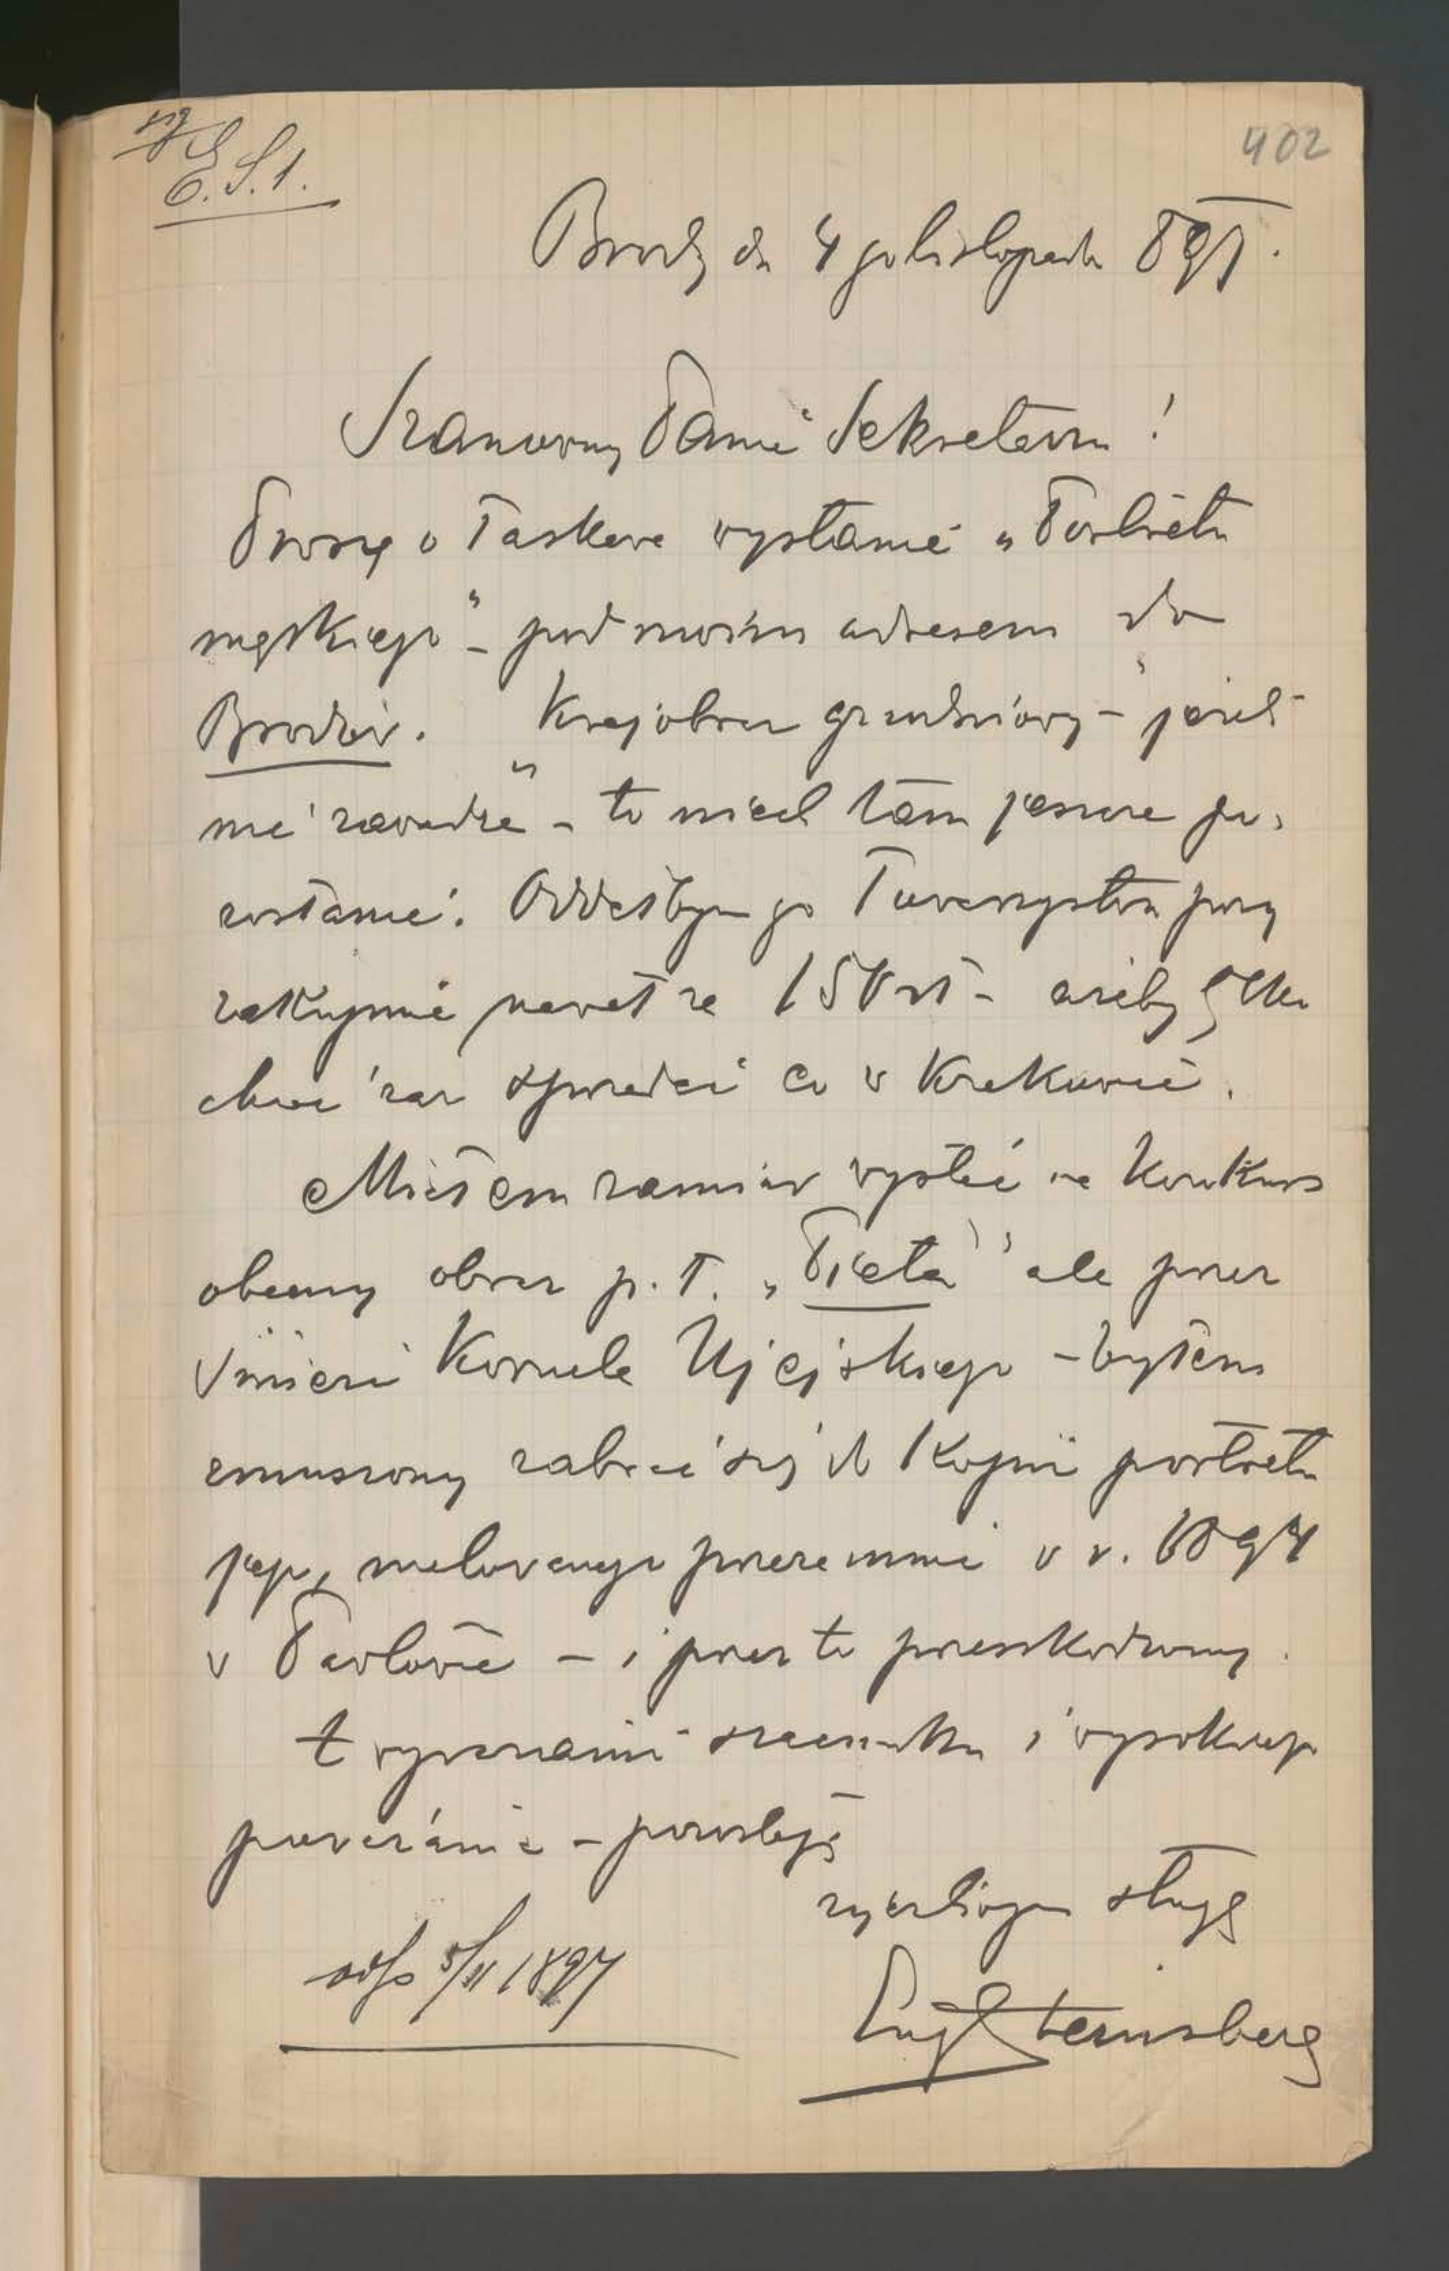 E. S. 1.
402
Brody dn 4 go listopada 897.
Szanowny Panie Sekretarzu!
Proszę o łaskawe wysłanie „Portretu
męskiego" – pod moim adresem do
Brodów. „Krajobraz grudniowy" – jeżeli
nie zawadza – to niech tam jeszcze po-
zostanie. Oddałbym go Towarzystwu przy
zakupnie nawet za 150 zł – ażeby tylko
choć raz sprzedać co w Krakowie.
Miałem zamiar wysłać na konkurs
obecny obraz p. t. „Pieta" ale przez
śmierć Kornela Ujejskiego – byłem
zmuszony zabrać się do kopii portretu
jego, malowanego przezemnie w r. 1894
w Pawłowie – i przez to przeszkodzony.
Z wyrazami szacunku i wysokiego
poważania – pozostaję
życzliwym sługą
odp 5/11 1897
Eug Sternsberg